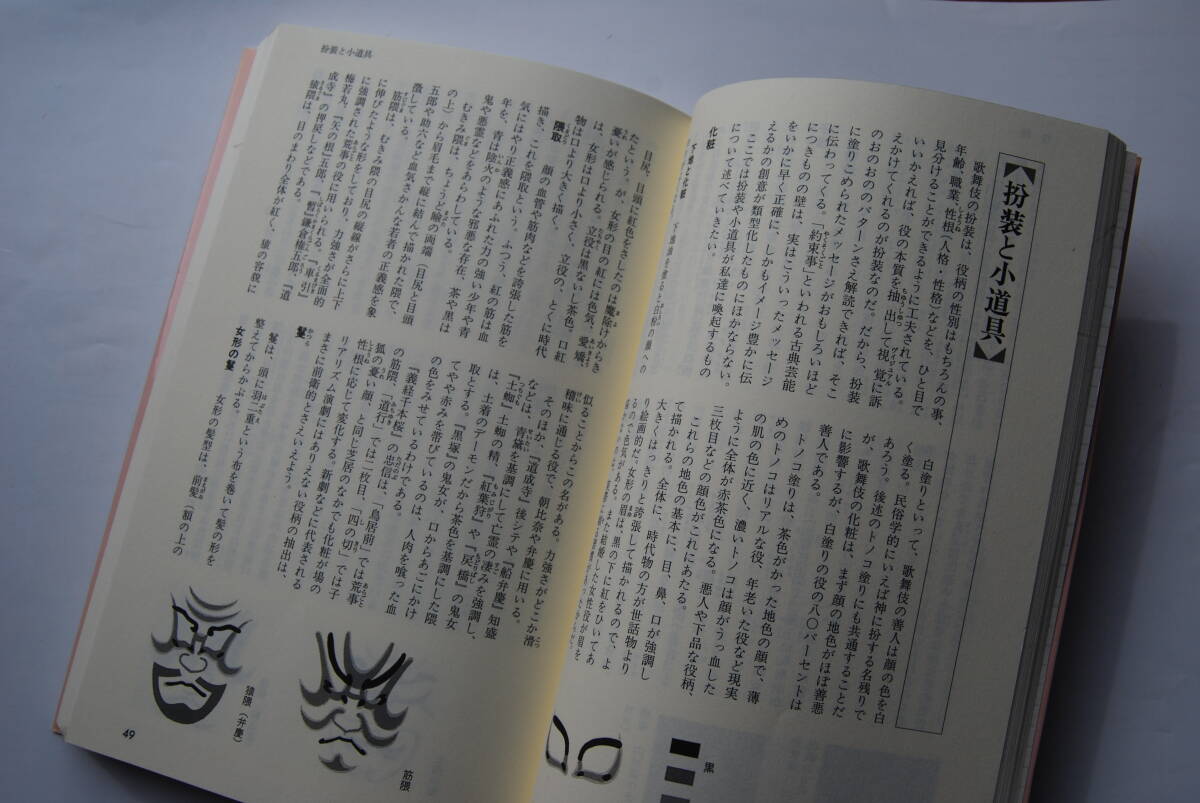 【扮装と小道具】
歌舞伎の扮装は、役柄の性別はもちろんの事、
年齢、職業、性根（人格・性格）などを、ひと目で
見分けることができるように工夫されている。
いいかえれば、役の本質を抽出して視覚に訴
えかけてくれるのが扮装なのだ。だから、扮装
のおのおののパターンさえ解読できれば、そこ
に塗りこめられたメッセージがおもしろいほど
に伝わってくる。「約束事」といわれる古典芸能
につきものの壁は、実はこういったメッセージ
をいかに早く正確に、しかもイメージ豊かに伝
えるかの創意が類型化したものにほかならない。
ここでは扮装や小道具が私達に喚起するもの
について述べていきたい。
化粧
下地と化粧
白塗りといって、歌舞伎の善人は顔の色を白
く塗る。民俗学的にいえば神に扮する名残りで
あろう。後述のトノコ塗りにも共通することだ
が、歌舞伎の化粧は、まず顔の地色がほぼ善悪
に影響するが、白塗りの役の八〇パーセントは
善人である。
トノコ塗りは、茶色がかった地色の顔で、薄
めのトノコはリアルな役、年老いた役など現実
の肌の色に近く、濃いトノコは顔がうっ血した
ように全体が赤茶色になる。悪人や下品な役柄、
三枚目などの顔色がこれにあたる。
これらの地色の基本に、目、鼻、口が強調し
て描かれる。全体に、時代物の方が世話物より
大きくはっきりと誇張して描かれるので、よ
り絵画的だ。女形の眉は、黒の下に紅をひいてあ
るので色気がある。また結婚した女性役が眉を
黒
扮装と小道具
目尻、目頭に紅色をさしたのは魔除けからき
たという。が、女形の目の紅には色気、愛嬌、
憂いが感じられる。立役は黒ないし茶色。口紅
は、女形は口より小さく、立役の、とくに時代
物は口より大きく描く。
隈取　顔の血管や筋肉などを誇張した筋を
描き、これを隈取という。ふつう、紅の筋は血
気にはやり正義感にあふれた力の強い少年や青
年を、青は陰火のような邪悪な存在、茶や黒は
鬼や悪霊などをあらわしている。
むきみ隈は、ちょうど瞼の両端（目尻と目頭
の上）から眉毛まで縦に結んで描かれた隈で、
五郎や助六など血気さかんな若者の正義感を象
徴している。
筋隈は、むきみ隈の目尻の縦線がさらに上下
に伸びたような形をしており、力強さが全面的
に強調された荒事の役に用いられる。『車引』
梅若丸、『矢の根』五郎、『暫』鎌倉権五郎、『道
成寺』の押戻しなどである。
猿隈は、目のまわり全体が紅く、猿の容貌に
似ることからこの名がある。力強さがどこか滑
稽味に通じる役で、朝比奈や弁慶に用いる。
そのほか、『道成寺』後シテや『船弁慶』知盛
などは、青黛を基調にして亡霊の凄みを強調し、
『土蜘』土蜘の精、『紅葉狩』や『戻橋』の鬼女
は、土着のデーモンだから茶色を基調にした隈
取とする。『黒塚』の鬼女が、口からあごにかけ
てやや赤みを帯びているのは、人肉を喰った血
の色をみせているわけである。
『義経千本桜』の忠信は、「鳥居前」では荒事
の筋隈、「道行」では二枚目、「四の切」では子
狐の憂い顔、と同じ芝居のなかでも化粧が場の
性根に応じて変化する。新劇などに代表される
リアリズム演劇にはありえない役柄の抽出は、
まさに前衛的とさえいえよう。
鬘
鬘は、頭に羽二重という布を巻いて髪の形を
整えてからかぶる。
女形の鬘　女形の髪型は、前髪（額の上の
猿隈（弁慶）
筋隈
49